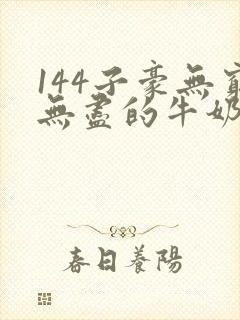 144子豪無窮
無盡的牛奶
春日養陽